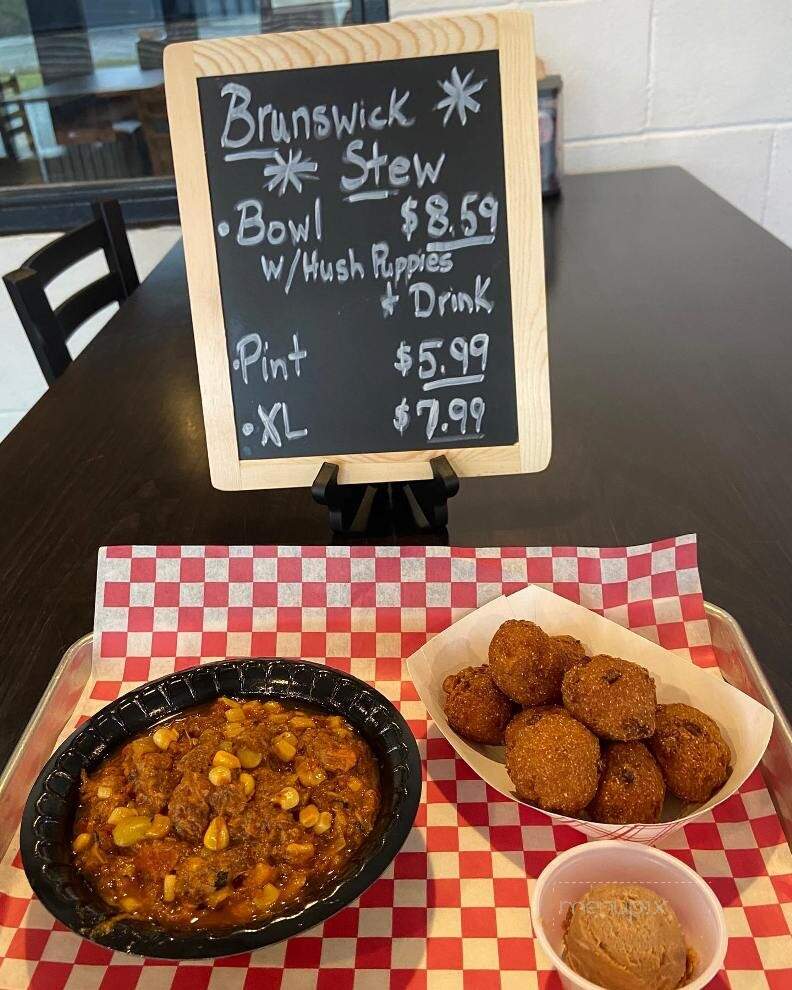 Brunswick *
* Stew
• Bowl $8.59
w/Hush Puppies
+ Drink
• Pint $5.99
• XL $7.99
menupix